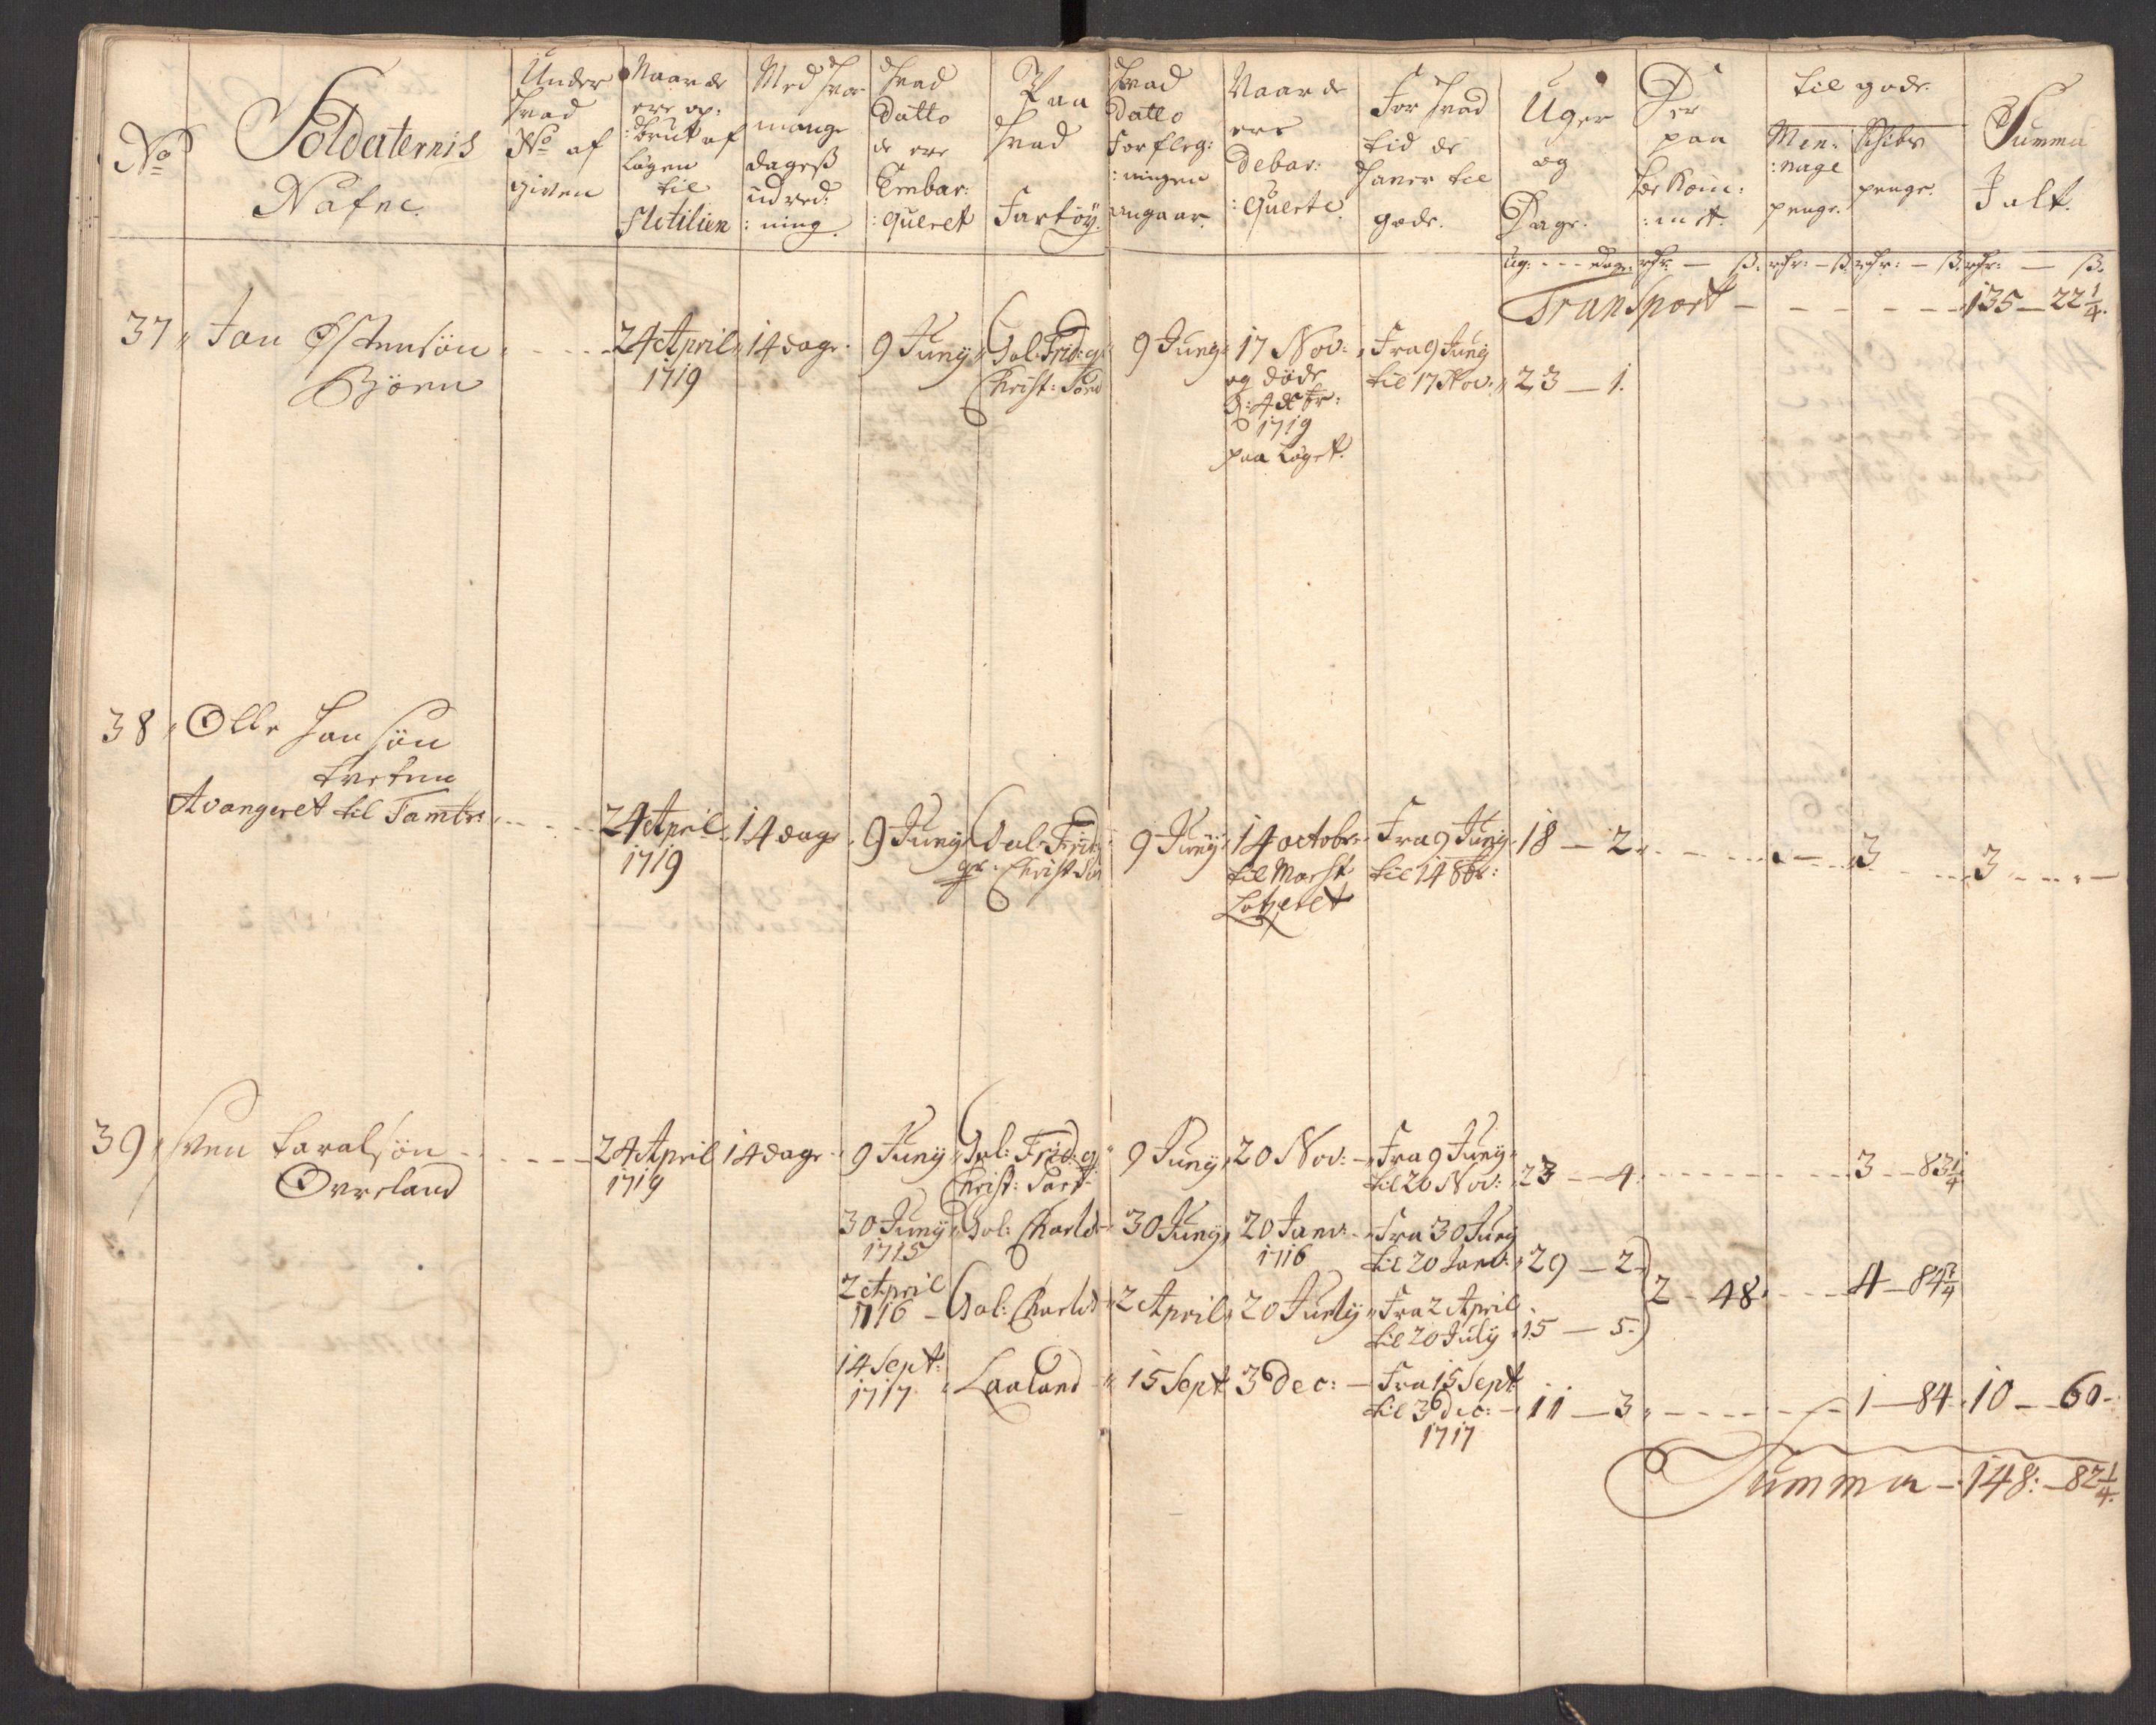 No
Soldaternis
Nafne.
Under
hvad
No af
given
Naar de
ere op:
:brut af
Lägen
til
Flotilien
Med hvor
mange
dageß
udred:
:ning.
Hvad
datto
de ere
Embar:
:queret
Paa
hvad
Fartöy.
Hvad
datto
Forfleg:
:ningen
angaar.
Naar de
ere
debar:
:querte.
For hvad
tid de
haver til
gode.
Uger
og
Dage.
Der
paa
be kom:
:met.
til gode
Men:
:nage
penge.
Schibs
penge.
Summa
Jalt.
ug: --- dage: rdr: — ß. rdr: — ß. rdr: — ß. rdr: — ß.
Transport - - - - - 135 — 22 1/4.
37 Jan Østensön ---- 24 April 14 dage. 9 Juny Gal: Frid: g: 9 Juny 17 Nov: Fra 9 Juny
Björn 1719 Christ: Pört og döde til 17 Nov: 23 — 1.
d: 4 xbr:
1719
paa Laget.
38 Olle Jansön
tveten
Avangeret til Tambr: ---- 24 April 14 dage 9 Juny Gal: Frid: 9 Juny 14 octobr: Fra 9 Juny 18 — 2 - - - - 3 - - - 3 - - -
1719 Christ til Marst til 14 8br:
Latzeret
39 Sven taralsön ---- 24 April 14 dage 9 Juny Gal: Frid: g: 9 Juny 20 Nov: Fra 9 Juny
Overland 1719 Christ: Pört til 20 Nov: 23 — 4 - - - - 3 — 83 1/4
30 Juny Gal: Charlot 30 Juny 20 Janv: Fra 30 Juny
1715 1716 til 20 Janv: 29 — 2
2 April
1716 - Gal: Charlot 2 April 20 July Fra 2 April 2 - 48 - - - 4 — 84 3/4
til 20 July 15 — 5.
14 Sept:
1717 Laaland 15 Sept 3 Dec: — Fra 15 Sept
til 3 dec: 11 — 3 - - - - 1 — 84 10 — 60 -
1717
Summa - 148: — 82 1/4.